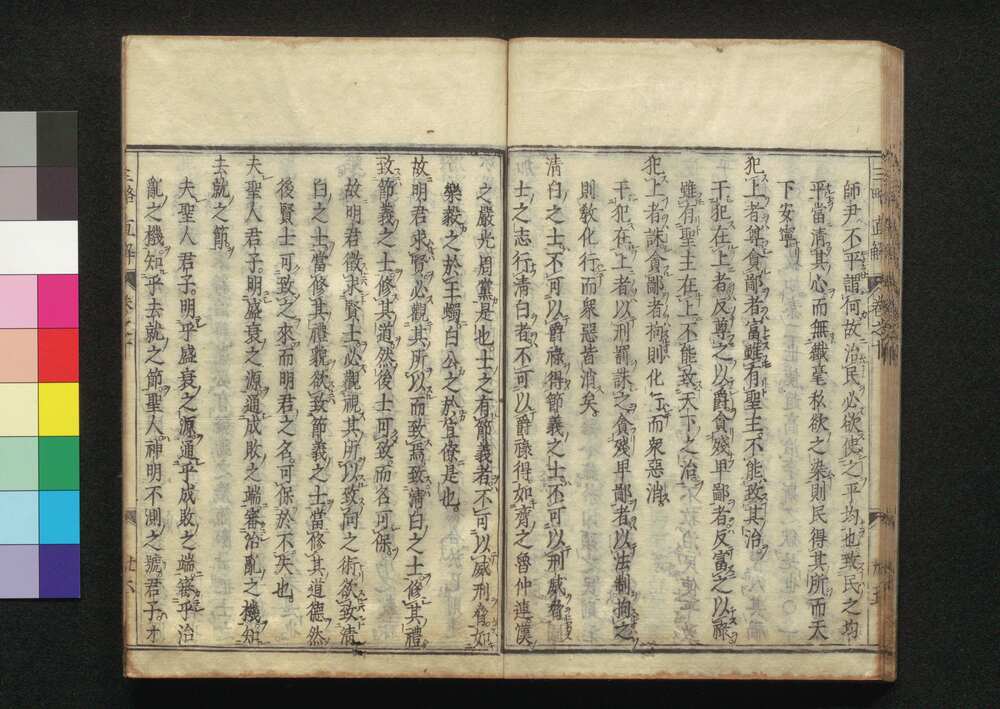 師尹不平謂何故治民必欲使之平均也致民之均
平當清其心而無纖毫私欲之染則民得其所而天
下安寧
犯上者尊貪鄙者富雖有聖王不能致其治
干犯在上者反尊之以爵貪殘卑鄙者反富之以祿
雖有聖主在上不能致天下之治
犯上者誅貪鄙者拘則化行而衆惡消
干犯在上者以刑罰誅之貪殘卑鄙者以法制拘之
則敎化行而衆惡皆消矣
清白之士不可以爵祿得節義之士不可以刑威脅
士之志行清白者不可以爵祿得如齊之魯仲連漢
之嚴光周黨是也士之有節義者不可以威刑脅如
樂毅之於王蠋白公之於宜僚是也
故明君求賢必觀其所以而致焉致清白之士修其禮
致節義之士修其道然後士可致而名可保
故明君徵求賢士必觀視其所以致何之術欲致清
白之士當修其禮貌欲致節義之士當修其道德然
後賢士可致之來而明君之名可保於不失也
夫聖人君子明盛衰之源通成敗之端審治亂之機知
去就之節
夫聖人君子明乎盛衰之源通乎成敗之端審乎治
亂之機知乎去就之節聖人神明不測之號君子才
三略直解
卷之
三略直解
卷之
廿六